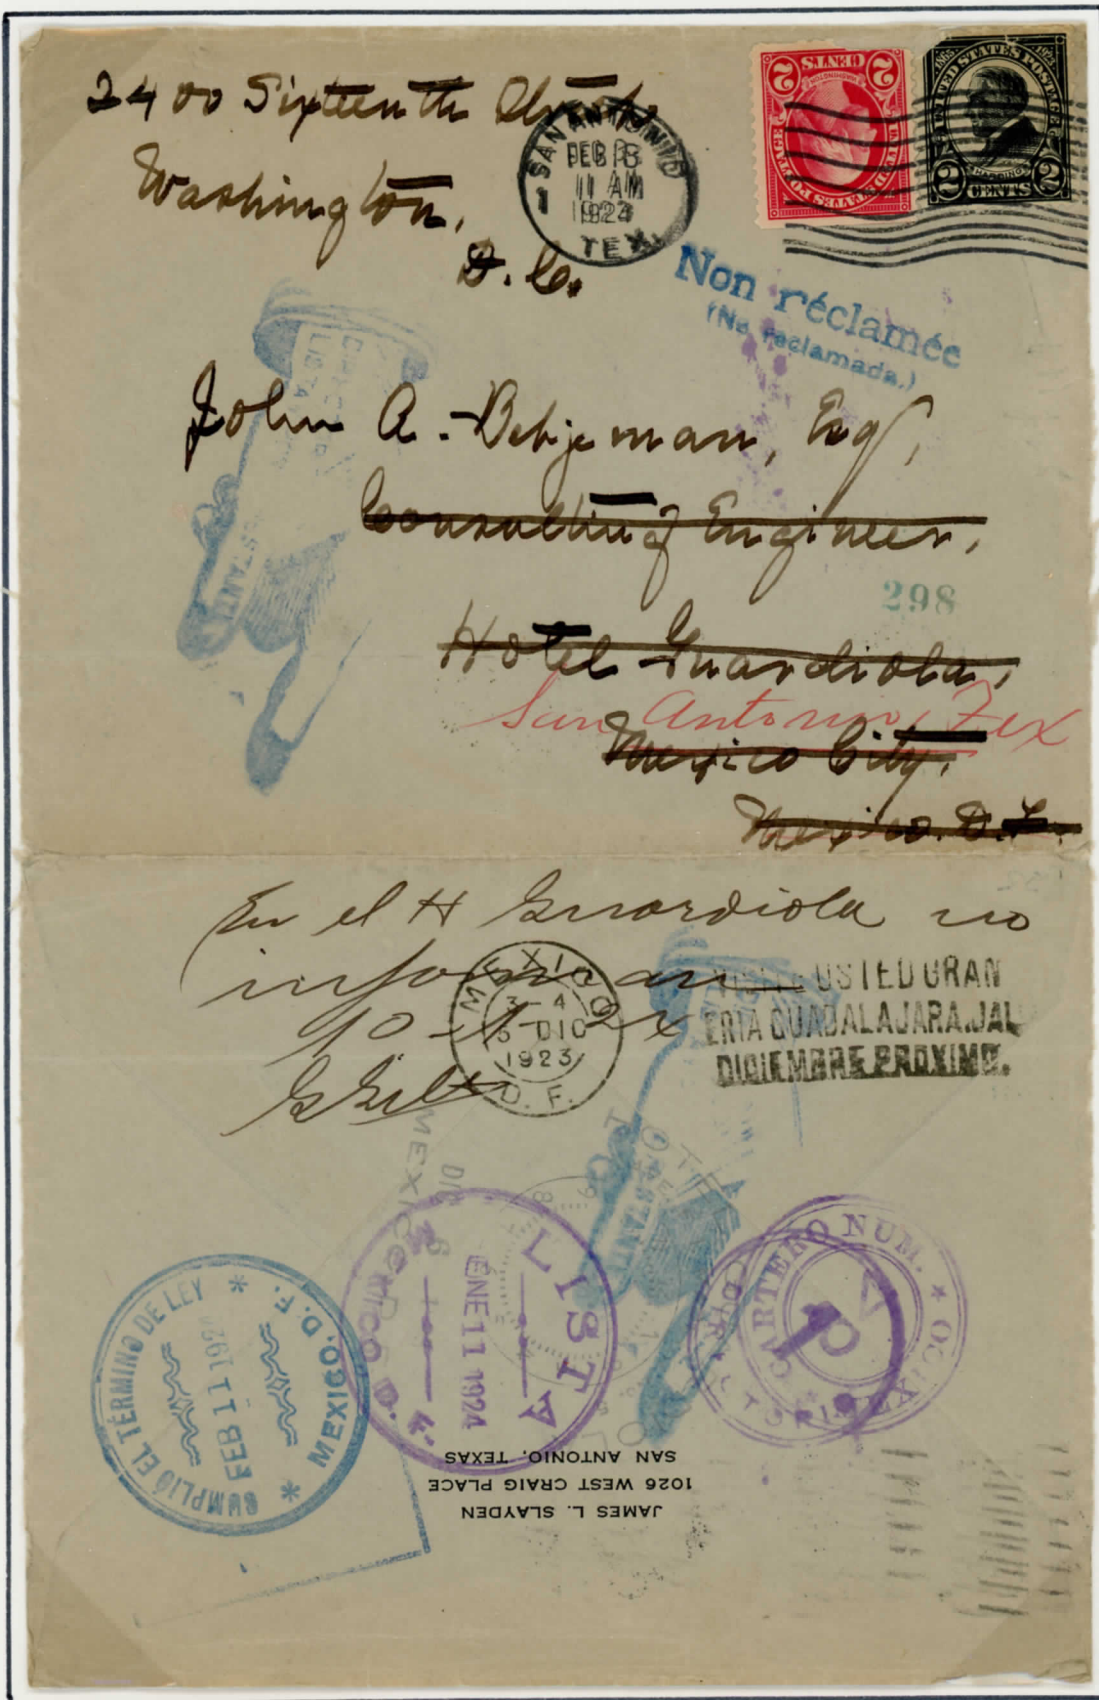 2400 Sixteenth
Washington,
D.C.
SAN ANTONIO
11 AM
TEX.
1
UNITED STATES POSTAGE
WASHINGTON
2 CENTS 2
UNITED STATES POSTAGE
1865 1923
HARDING
2 CENTS 2
Non réclamée
(No reclamada.)
John A. Betjeman, Esq,
Consulting Engineer,
298
Hotel Guardiola,
San Antonio, Tex
Mexico City,
Mexico. D.F.
En el H Guardiola no
informan
MEXICO
3-4
5 DIC
1923
D. F.
USTED GRAN
GUADALAJARA. JAL
DICIEMBRE PROXIMO.
CUMPLIÓ EL TÉRMINO DE LEY
FEB 11 192
MEXICO, D. F.
LISTA
ENE 11 1924
MEXICO D. F.
CARTERO NUM.
JAMES L. SLAYDEN
1026 WEST CRAIG PLACE
SAN ANTONIO, TEXAS